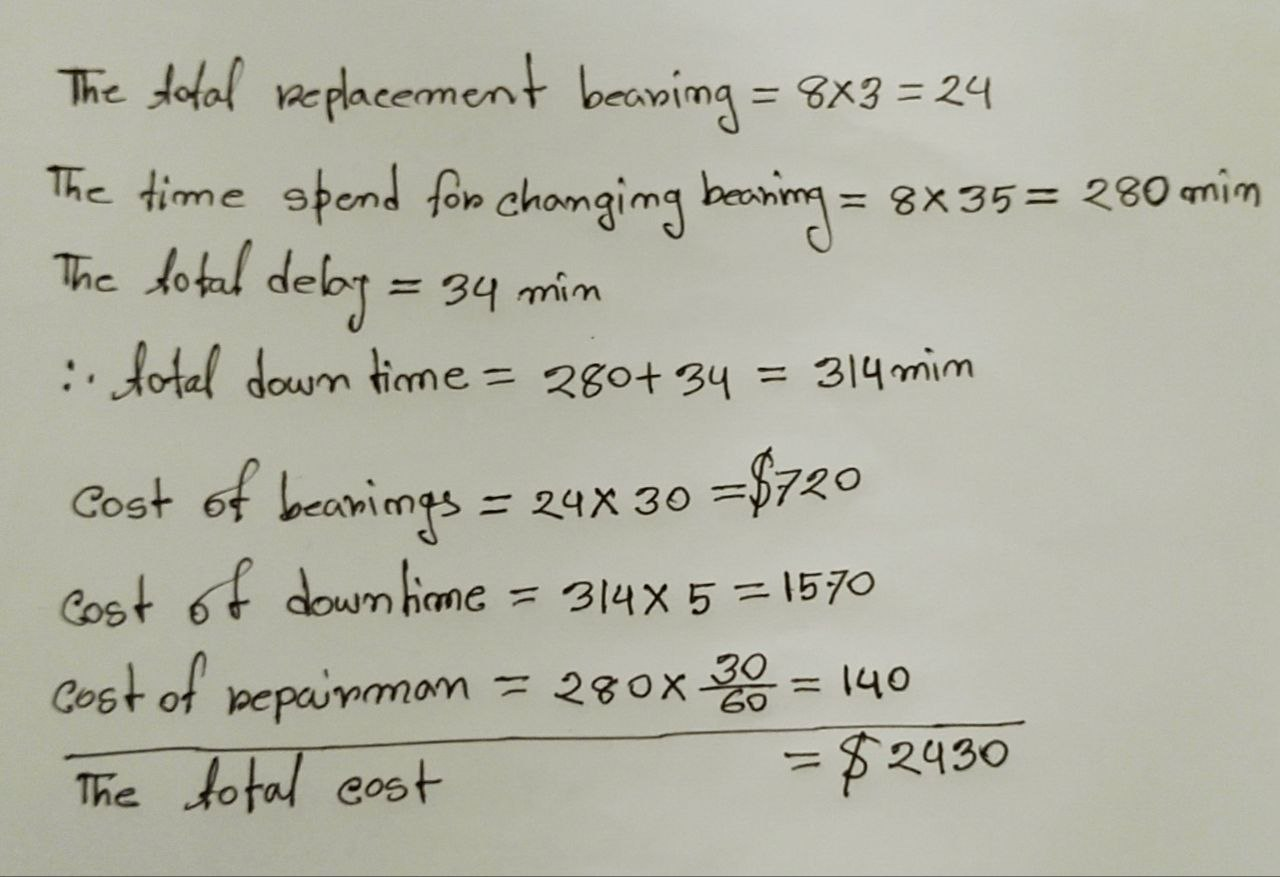 The total replacement bearing = 8x3 = 24
The time spend for changing bearing = 8 x 35 = 280 min
The total delay = 34 min
∴ total down time = 280 + 34 = 314 min
Cost of bearings = 24 x 30 = $720
Cost of downtime = 314 x 5 = 1570
Cost of repairman = 280 x 30/60 = 140
The total cost = $2430